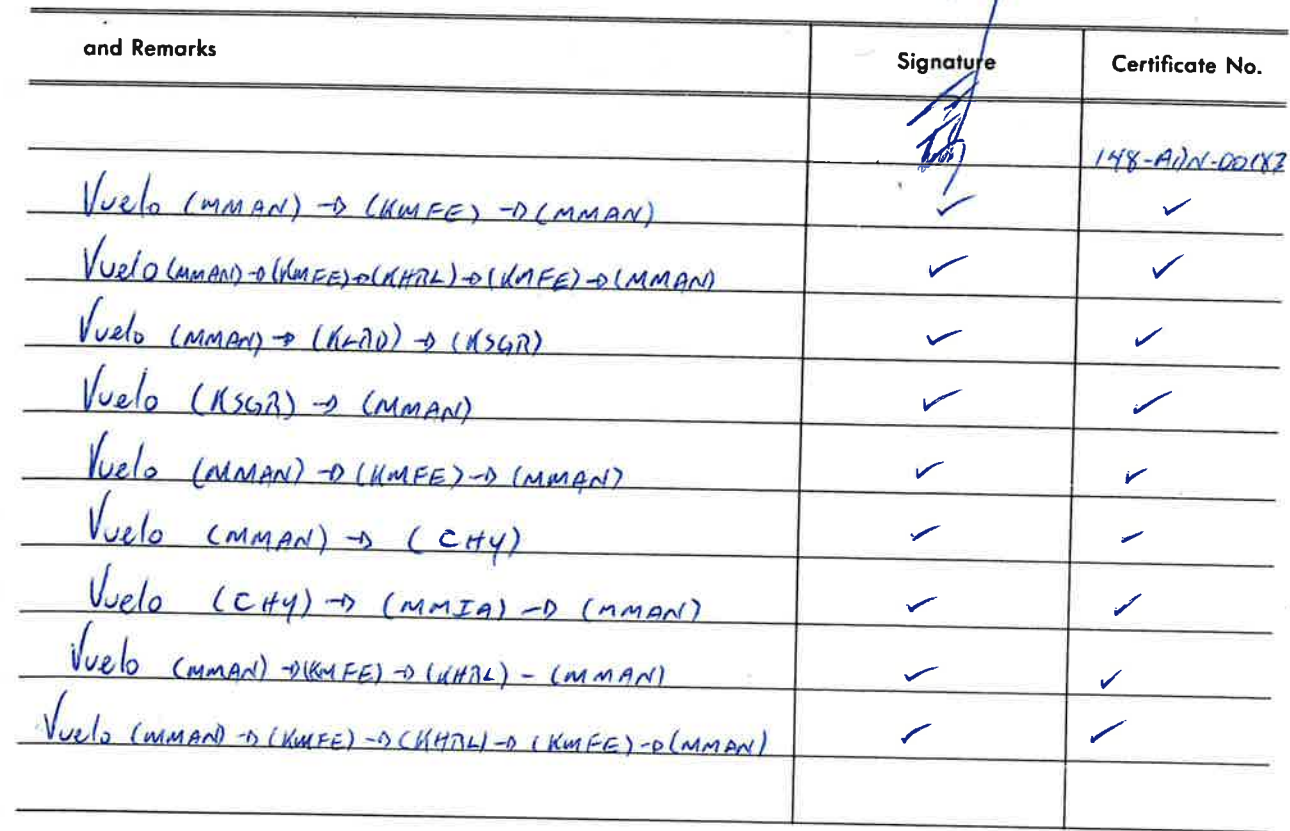 and Remarks Signature Certificate No.
148-ADN-00182
Vuelo (MMAN) → (KMFE) → (MMAN) ✓ ✓
Vuelo (MMAN) → (KMFE) → (KHRL) → (KMFE) → (MMAN) ✓ ✓
Vuelo (MMAN) → (KLRD) → (KSGR) ✓ ✓
Vuelo (KSGR) → (MMAN) ✓ ✓
Vuelo (MMAN) → (KMFE) → (MMAN) ✓ ✓
Vuelo (MMAN) → (CHY) ✓ ✓
Vuelo (CHY) → (MMIA) → (MMAN) ✓ ✓
Vuelo (MMAN) → (KMFE) → (KHRL) - (MMAN) ✓ ✓
Vuelo (MMAN) → (KMFE) → (KHRL) → (KMFE) → (MMAN) ✓ ✓